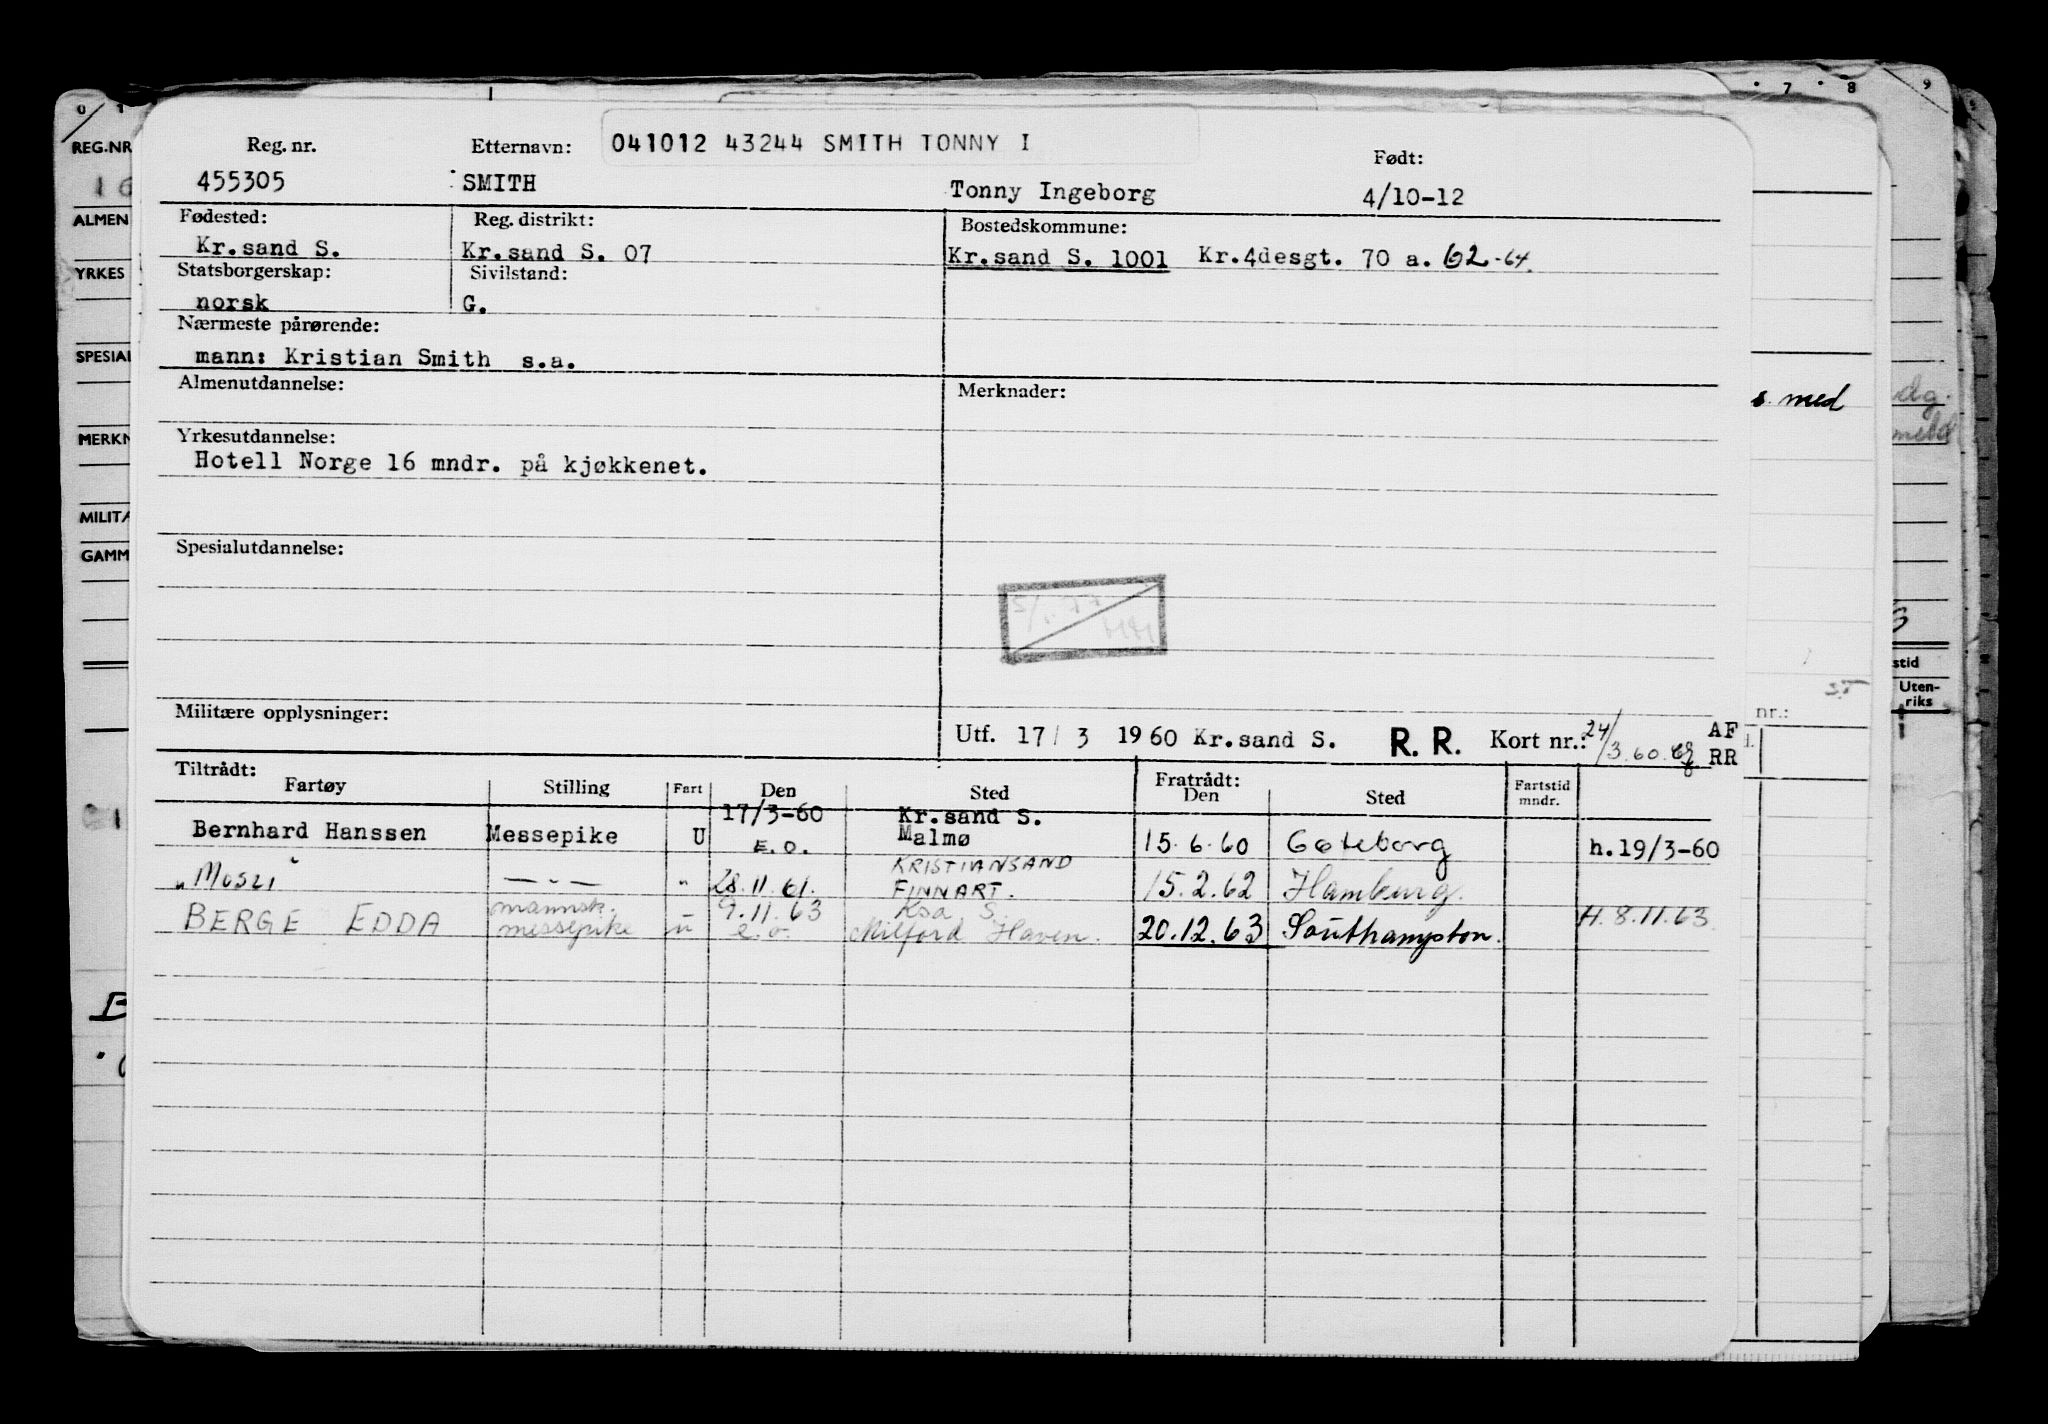 Reg. nr. Etternavn: 041012 43244 SMITH TONNY I Født:
455305 SMITH Tonny Ingeborg 4/10-12
Fødested: Reg. distrikt: Bostedskommune:
Kr.sand S. Kr.sand S. 07 Kr.sand S. 1001 Kr.4desgt. 70 a. 62-64.
Statsborgerskap: Sivilstand:
norsk G.
Nærmeste pårørende:
mann: Kristian Smith s.a.
Almenutdannelse: Merknader:
Yrkesutdannelse:
Hotell Norge 16 mndr. på kjøkkenet.
Spesialutdannelse:
Militære opplysninger:
Utf. 17/ 3 1960 Kr.sand S. R. R. Kort nr.: 24/3.60. AF RR
Tiltrådt: Fratrådt:
Fartøy Stilling Fart Den Sted Den Sted Fartstid mndr.
17/3-60 Kr.sand S.
Bernhard Hanssen Messepike U E.O. Malmø 15.6.60 Gøteborg h.19/3-60
KRISTIANSAND
" Mosli — " — " 28.11.61. FINNART. 15.2.62 Hamburg.
mannsk. 9.11.63 Ksa S.
BERGE EDDA messepike u e.o. Milford Haven. 20.12.63 Southampton. H. 8.11.63.
0 1
REG.NR
16
ALMEN
YRKES
SPESIAL
MERKN
MILITA
GAMM
7 8
9
s. med
nr.:
stid
Uten-
riks